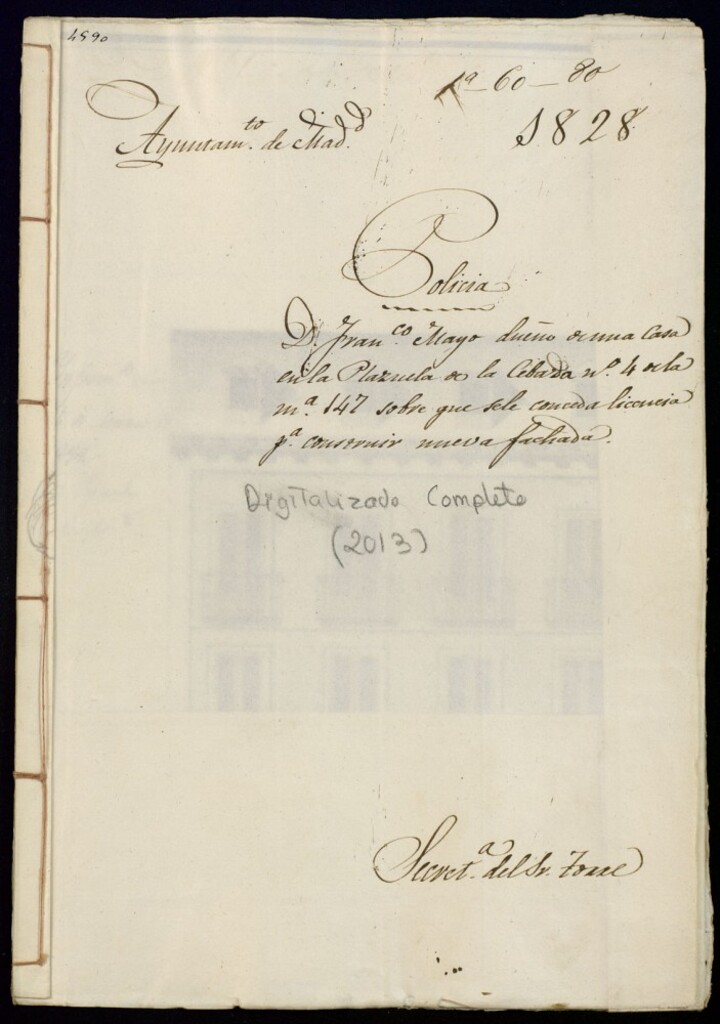 4590
1ª-60-80
Ayuntam.to de Mad.d
1828
Policia
D. Fran.co Mayo dueño de una Casa
en la Plazuela de la Cebada nº. 4 de la
m.ª 147 sobre que sele conceda licencia
p.ª construir nueva fachada.
Digitalizado Completo
(2013)
Secret.ª del Sr. Torre